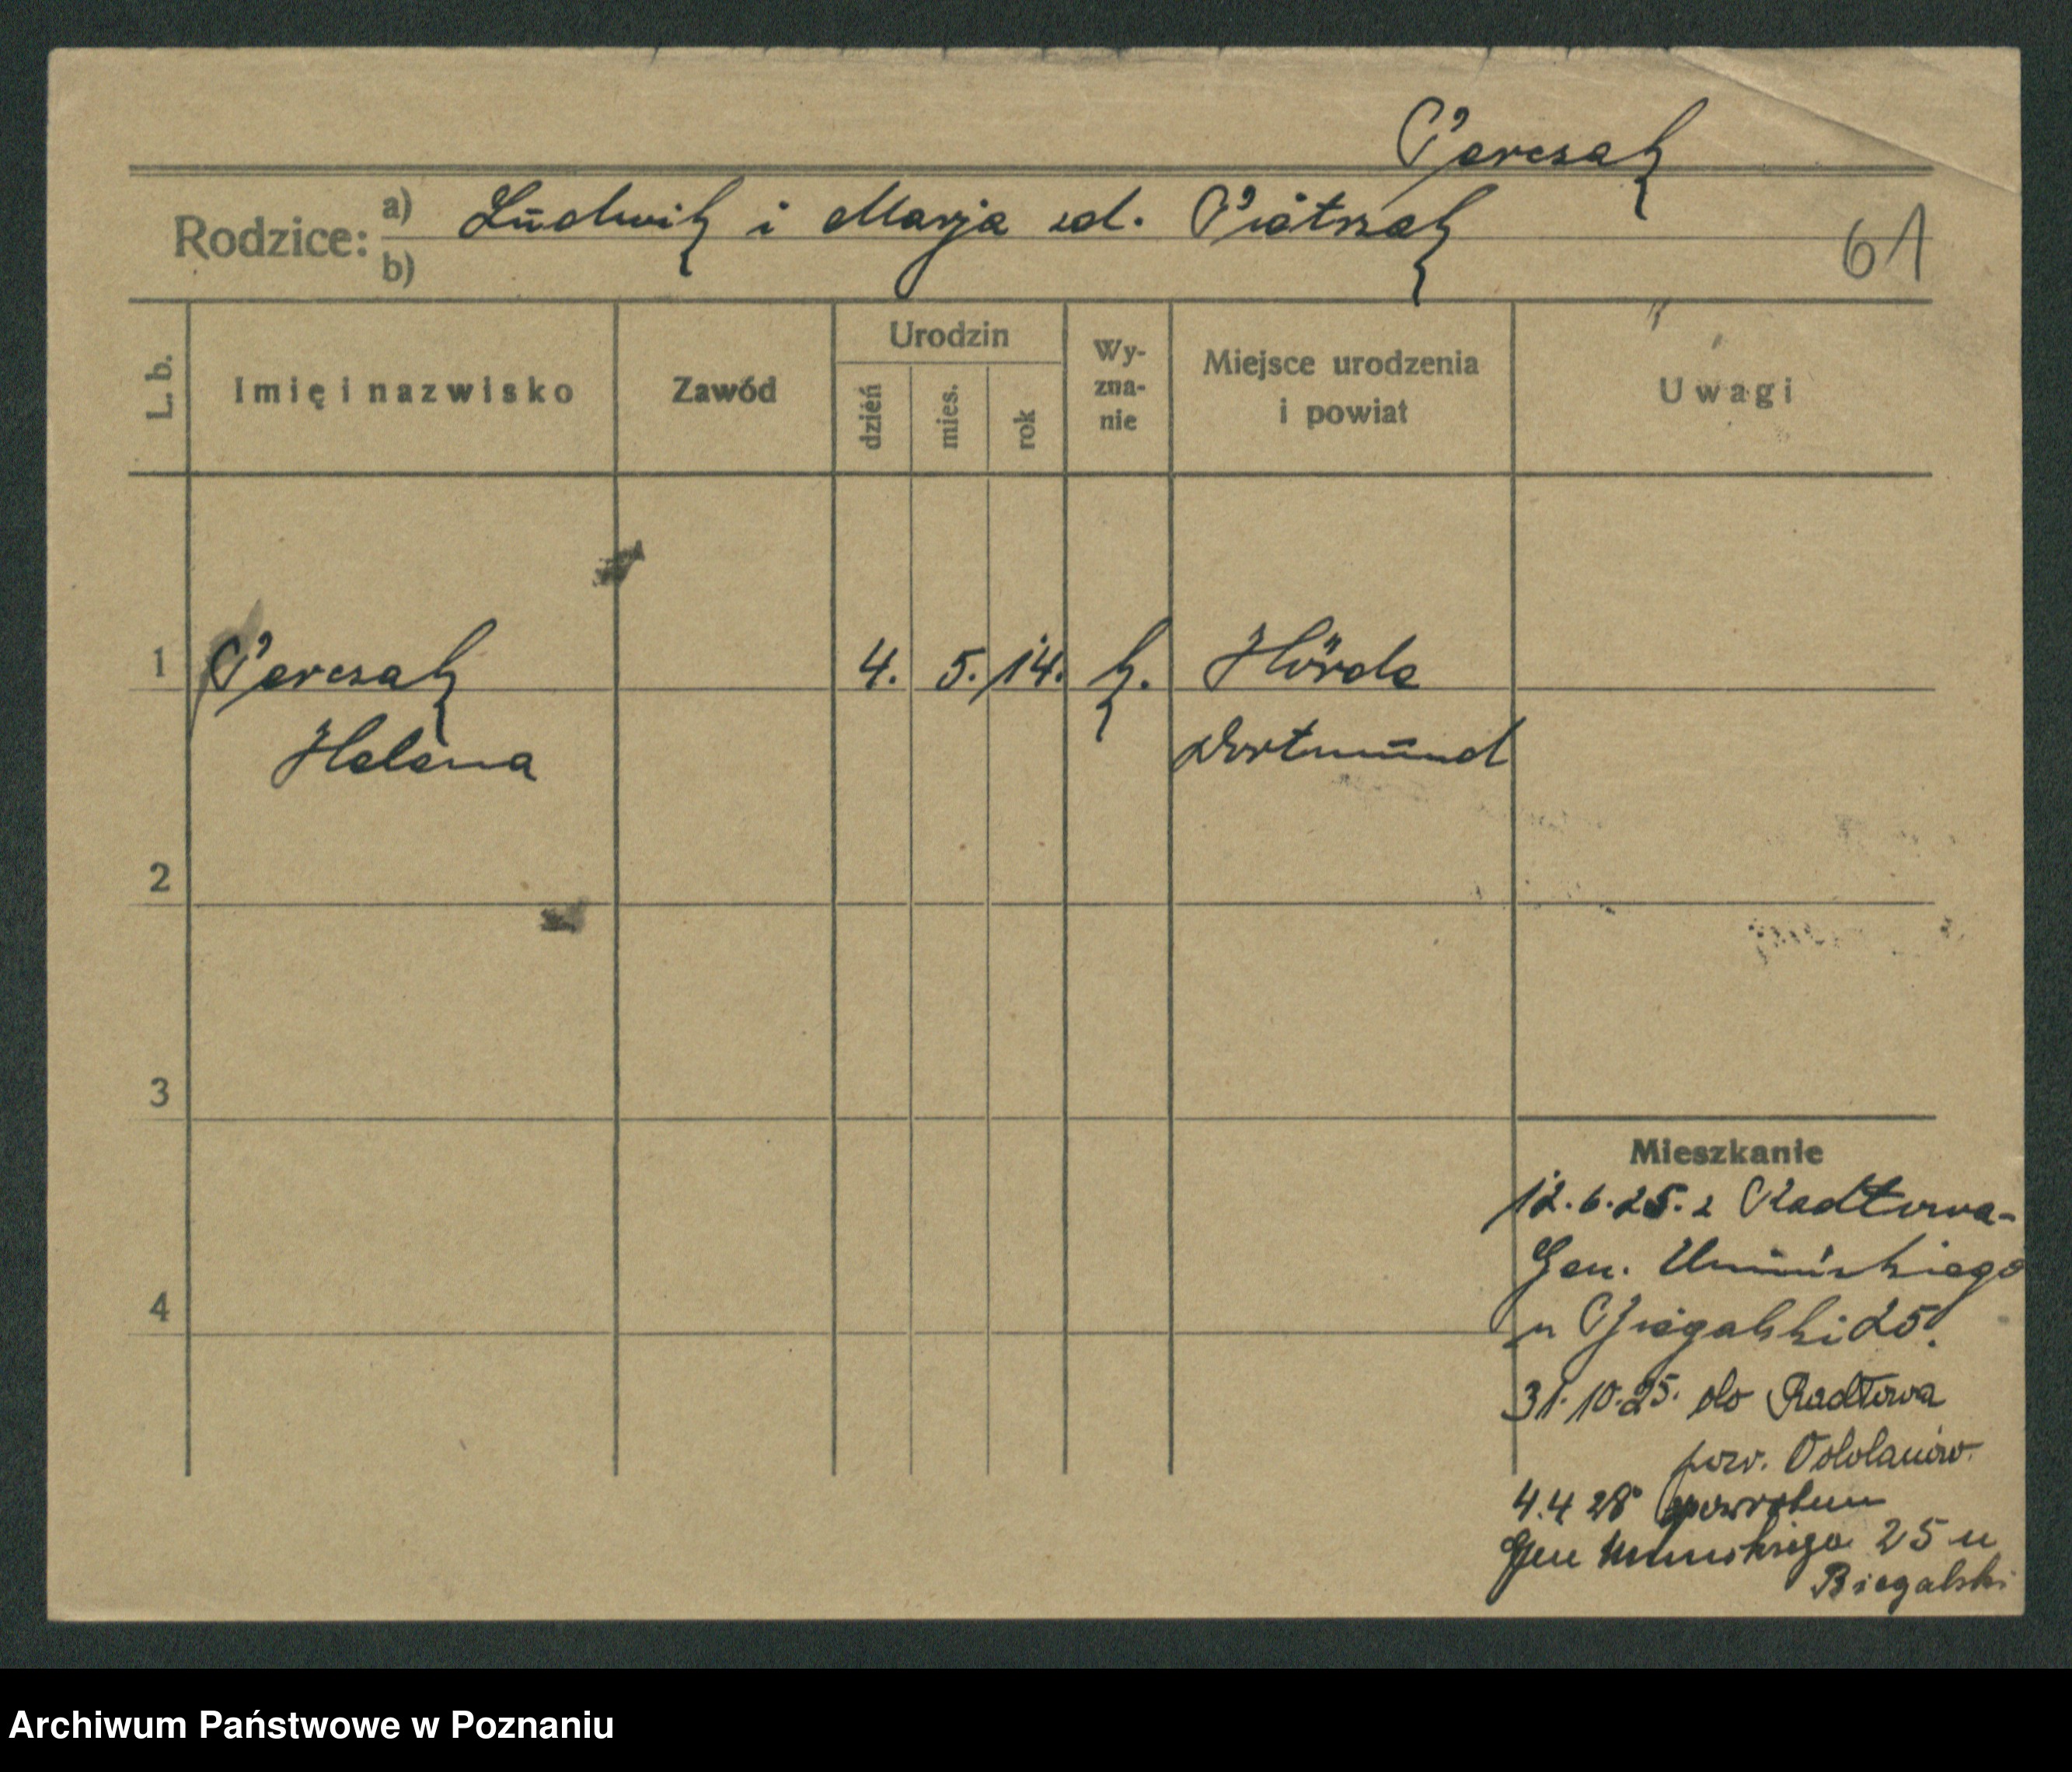 Perczak
Rodzice: a) Ludwik i Marja zd. Piótrzak
b)
61
L. b.
Imię i nazwisko
Zawód
Urodzin
dzień
mies.
rok
Wy-
zna-
nie
Miejsce urodzenia
i powiat
Uwagi
1 Perczak 4. 5. 14. k. Hörde
Helena Dortmund
2
3
Mieszkanie
12.6.25. z Radłowa-
Gen. Umińskiego
4
u Biegalski 25.
31.10.25. do Radłowa
pow. Odolanów.
4.4 28 spowrotem
Gen Umińskiego 25 u
Biegalski
Archiwum Państwowe w Poznaniu